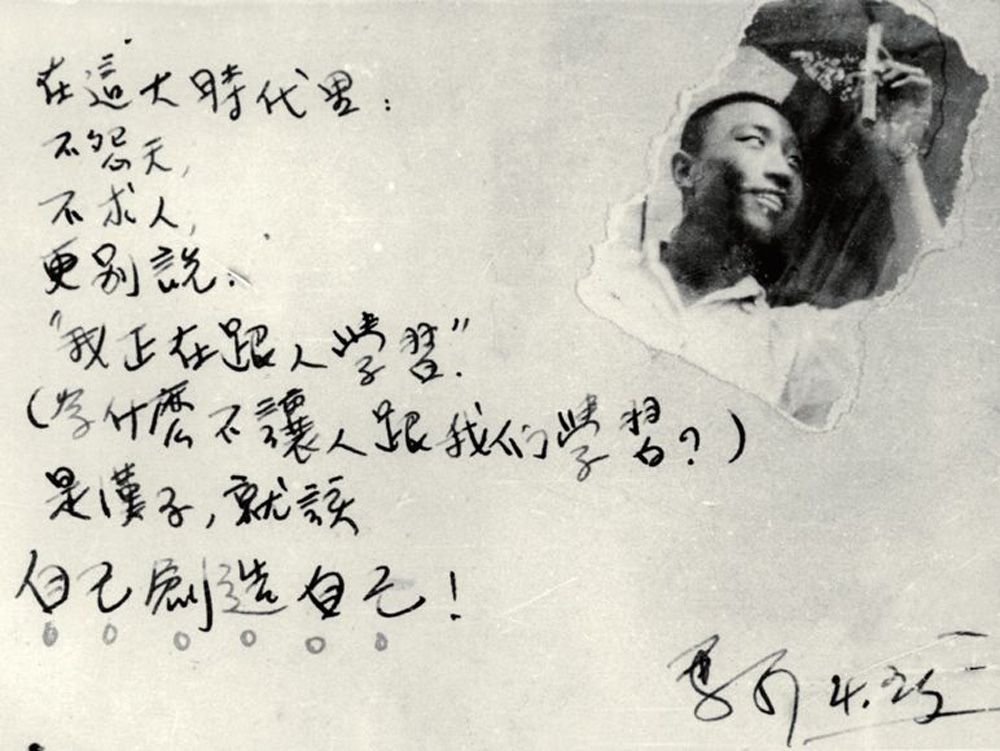 在這大時代里：
不怨天，
不求人，
更别說．
“我正在跟人學習”．
（学什麼不讓人跟我们學習？）
是漢子，就該
自己創造自己！
4.25